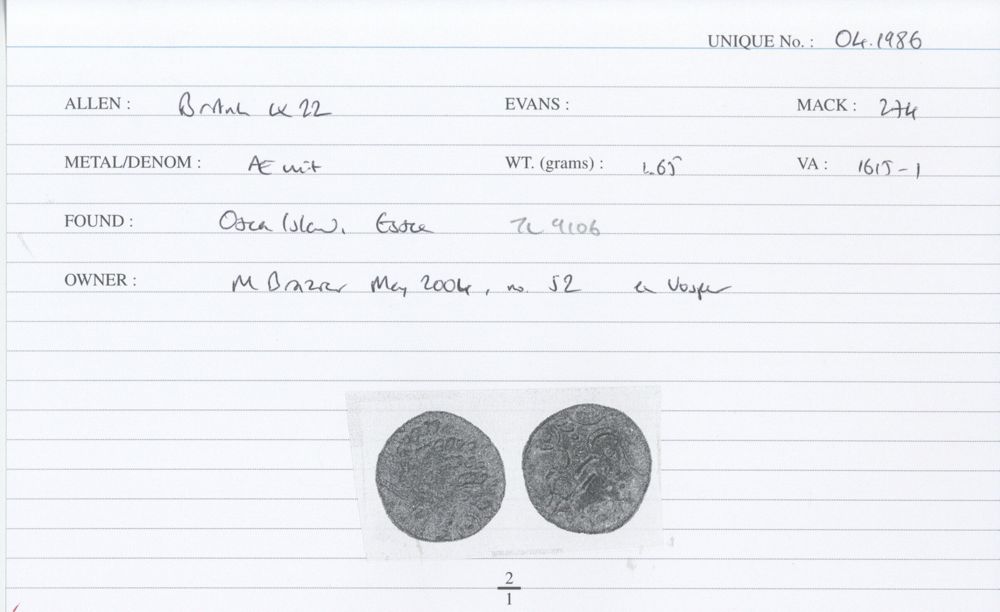 UNIQUE No. : 04.1986
ALLEN : British LX 22 EVANS : MACK : 274
METAL/DENOM : Æ unit WT. (grams) : 1.65 VA : 1615-1
FOUND : Osea Island, Essex TL 9106
OWNER : M Brazier May 2004, no. 52 ex Vosper
2
1